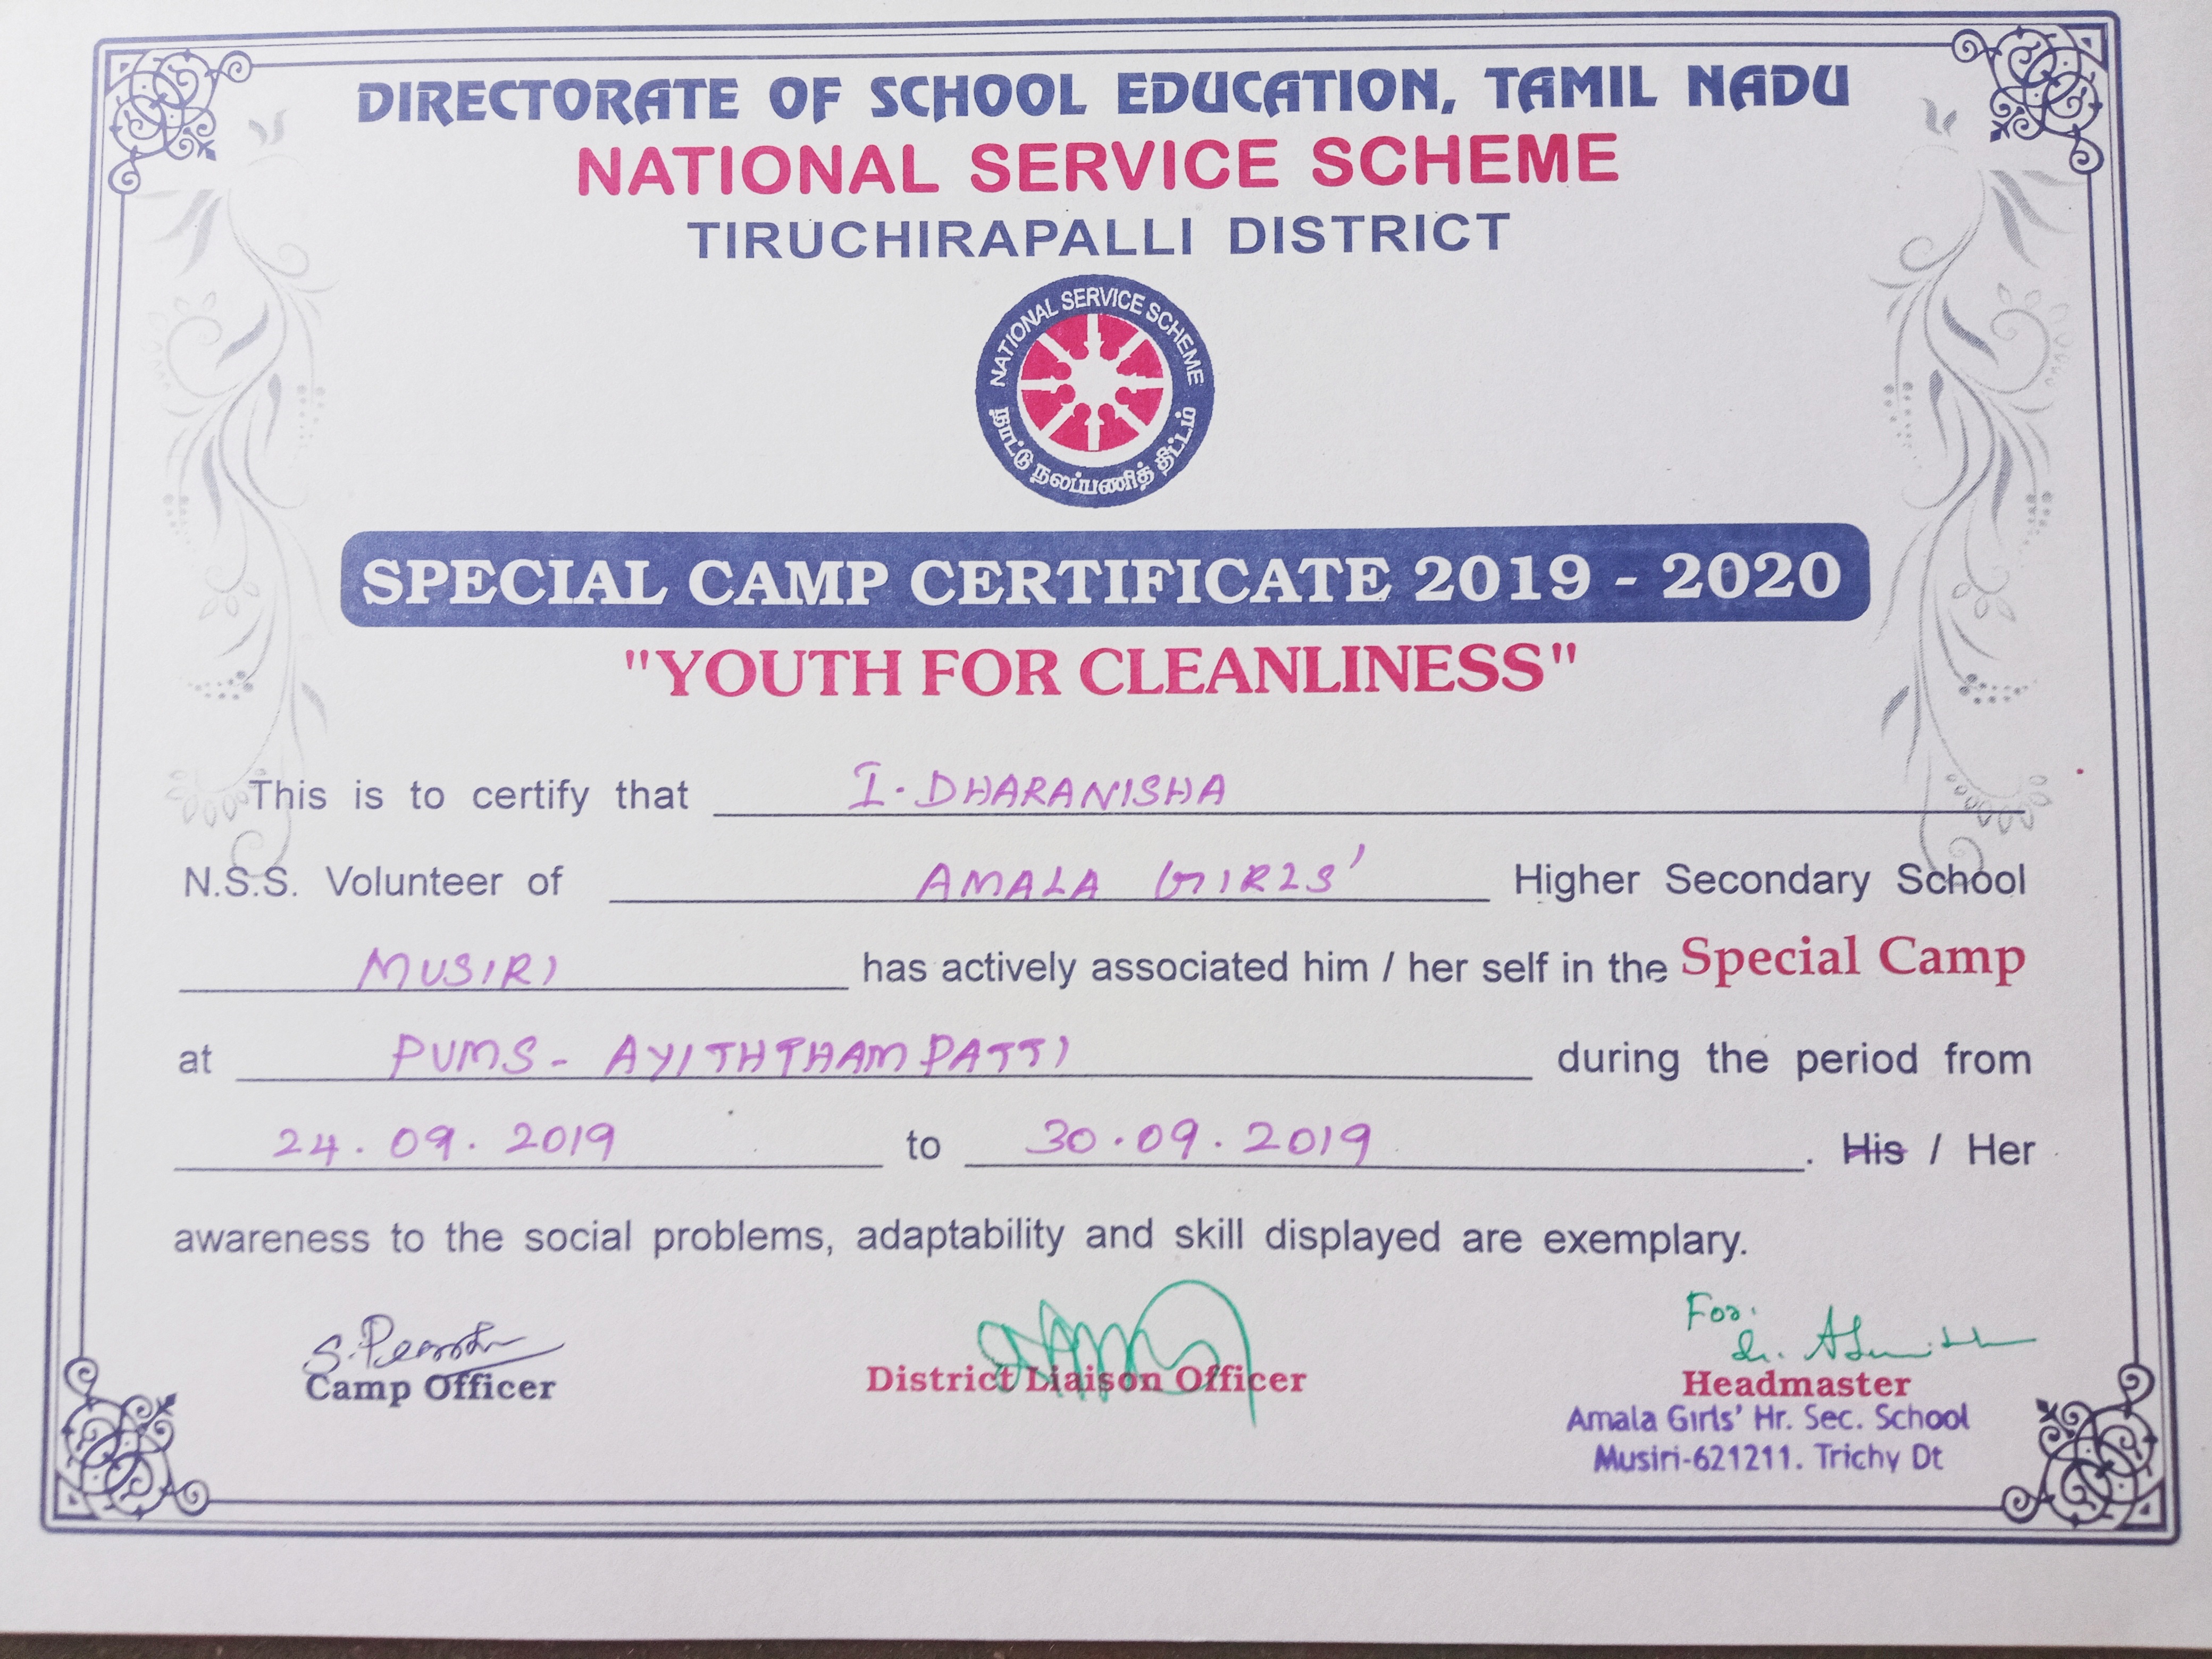 DIRECTORATE OF SCHOOL EDUCATION, TAMIL NADU
NATIONAL SERVICE SCHEME
TIRUCHIRAPALLI DISTRICT
NATIONAL SERVICE SCHEME
நாட்டு நலப்பணித் திட்டம்
SPECIAL CAMP CERTIFICATE 2019 - 2020
"YOUTH FOR CLEANLINESS"
This is to certify that I. DHARANISHA
N.S.S. Volunteer of AMALA GIRLS' Higher Secondary School
MUSIRI has actively associated him / her self in the Special Camp
at PUMS - AYITHTHAMPATTI during the period from
24.09.2019 to 30.09.2019. His / Her
awareness to the social problems, adaptability and skill displayed are exemplary.
For:
Camp Officer District Liaison Officer Headmaster
Amala Girls' Hr. Sec. School
Musiri-621211. Trichy Dt